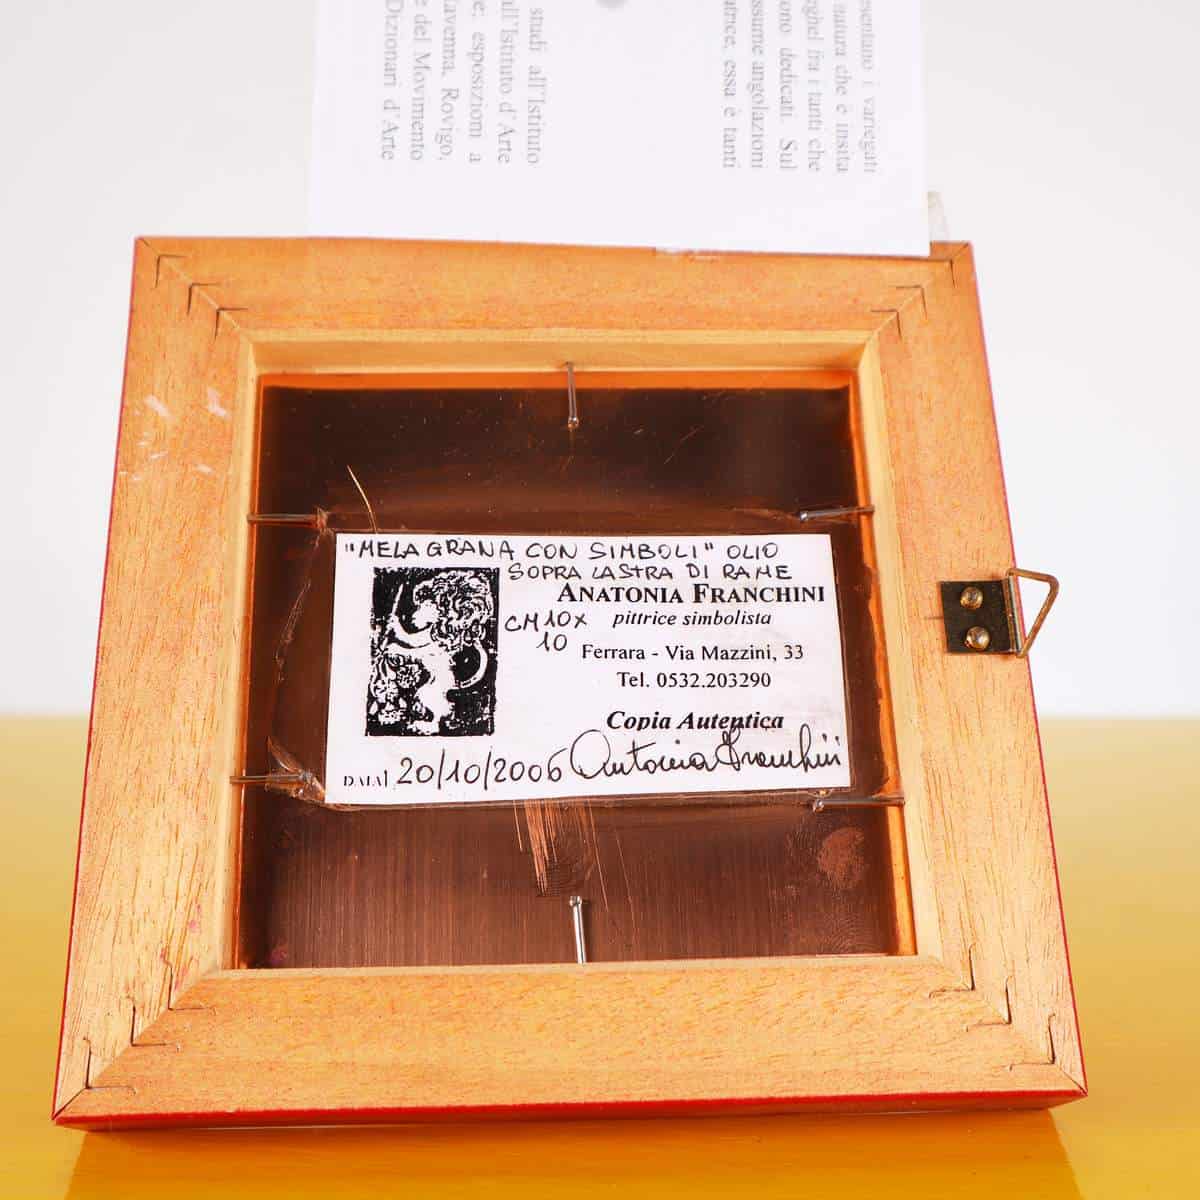 esentano i variegati
natura che è insita
eghel fra i tanti che
ono dedicati. Sul
ssume angolazioni
atrice, essa è tanti
studi all'Istituto
all'Istituto d'Arte
e; esposizioni a
Ravenna, Rovigo,
e del Movimento
Dizionari d'Arte
"MELAGRANA CON SIMBOLI" OLIO
SOPRA LASTRA DI RAME
ANATONIA FRANCHINI
CM 10X
10
pittrice simbolista
Ferrara - Via Mazzini, 33
Tel. 0532.203290
Copia Autentica
DATA 20/10/2006 Antonia Franchini